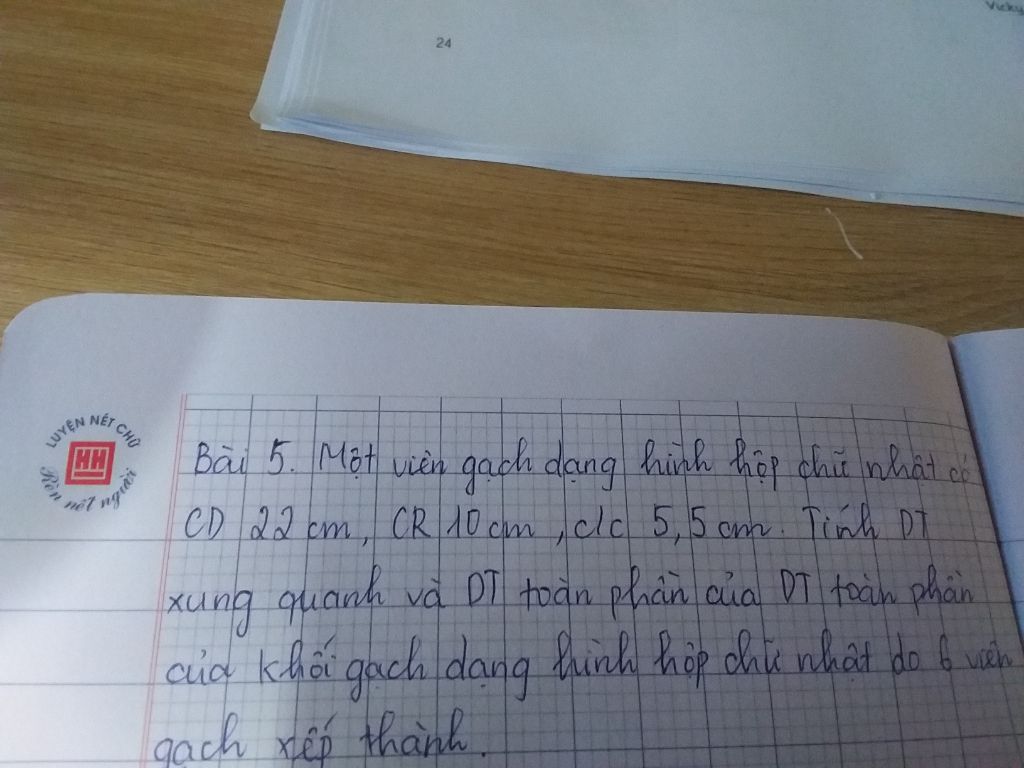 24
Vicky
LUYỆN NÉT CHỮ
HH
Rèn nết người
Bài 5. Một viên gạch dạng hình hộp chữ nhật có
CD 22 cm, CR 10 cm, c/c 5,5 cm. Tính DT
xung quanh và DT toàn phần của DT toàn phần
của khối gạch dạng hình hộp chữ nhật do 6 viên
gạch xếp thành.